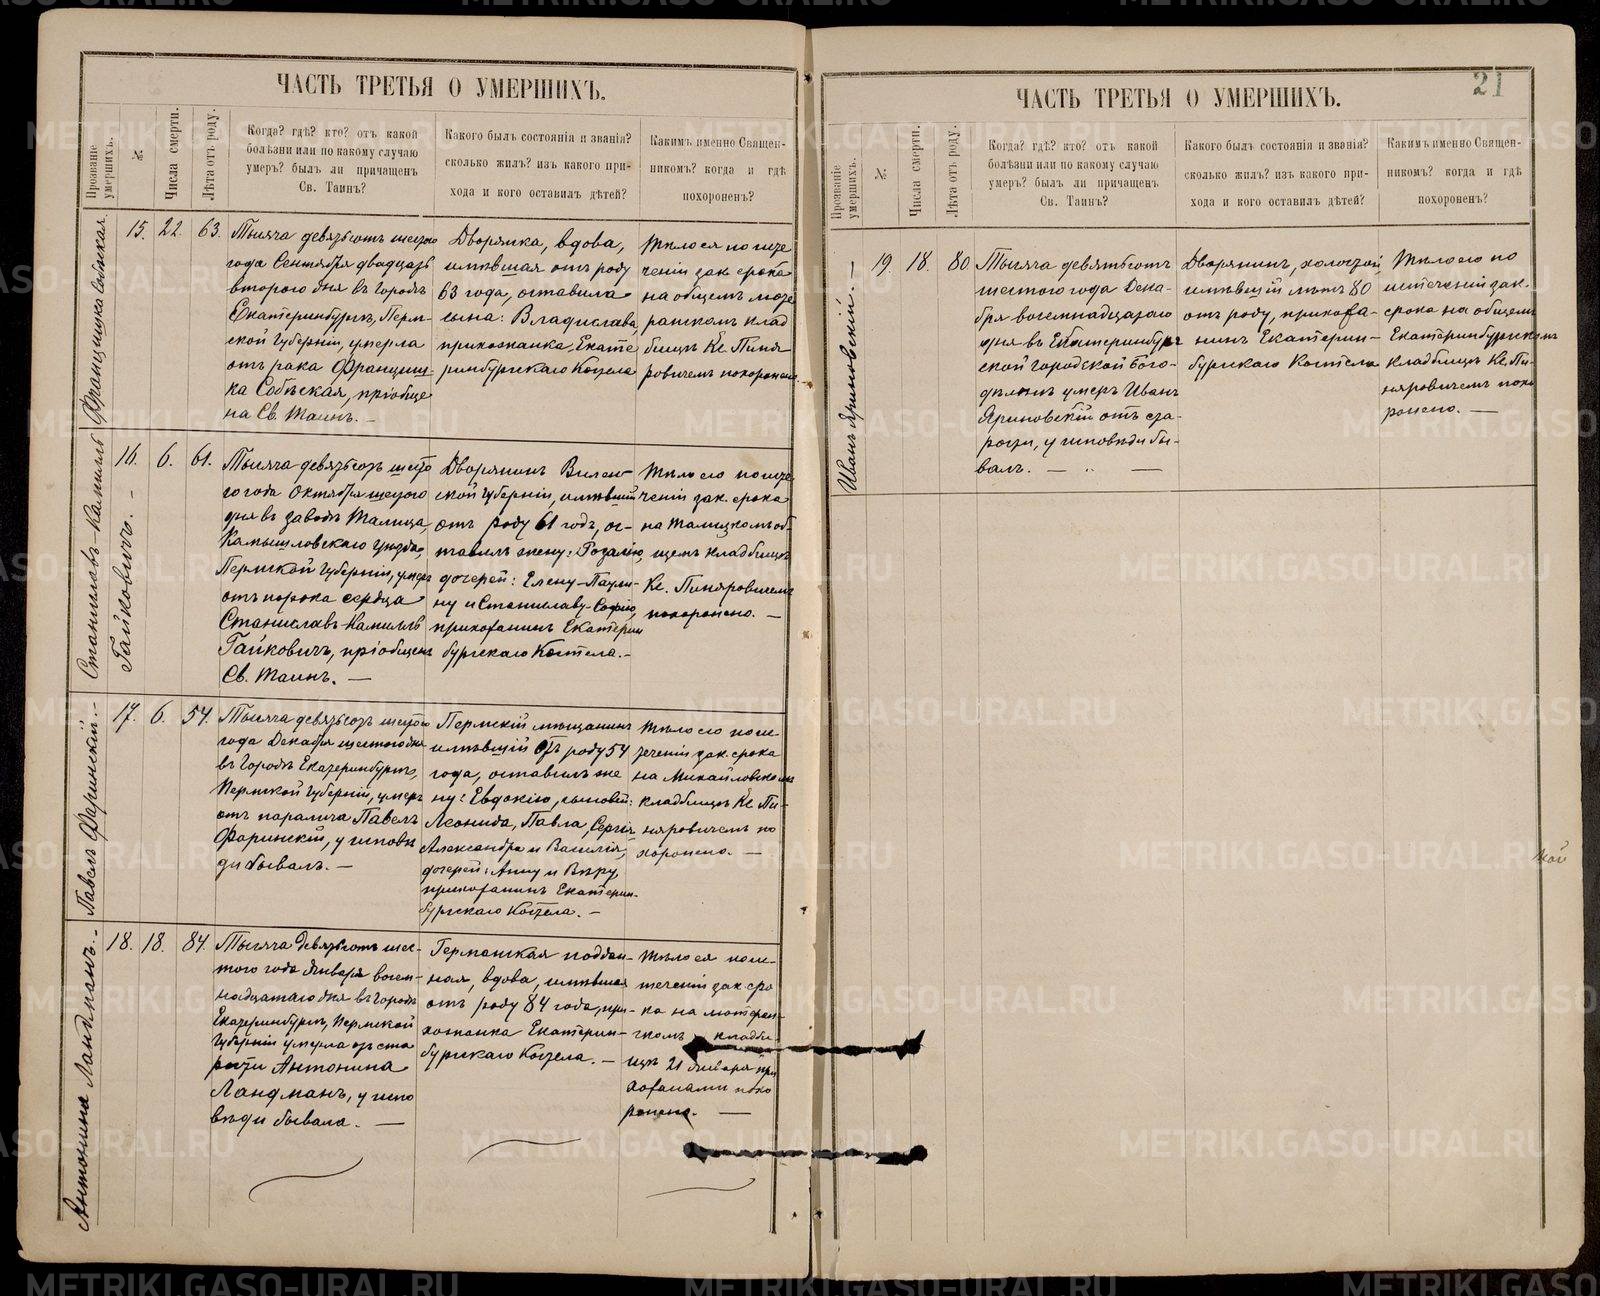 ЧАСТЬ ТРЕТЬЯ О УМЕРШИХЪ.
Прозваніе умершихъ.
№
Числа смерти.
Лѣта отъ роду.
Когда? гдѣ? кто? отъ какой
болѣзни или по какому случаю
умеръ? былъ ли причащенъ
Св. Таинъ?
Какого былъ состоянія и званія?
сколько жилъ? изъ какого при-
хода и кого оставилъ дѣтей?
Какимъ именно Священ-
никомъ? когда и гдѣ
похороненъ?
Францишка Собѣская
15.
22.
63.
Тысяча девятьсотъ шестого
года Сентября двадцать
второго дня въ городѣ
Екатеринбургѣ, Перм-
ской губерніи, умерла
отъ рака Францишка
ка Собѣская, пріобще
на Св. Таинъ. —
Дворянка, вдова,
имѣвшая отъ роду
63 года, оставила
сына: Владислава,
прихожанка Екате
ринбургскаго Костела
Тѣло ея по исте
ченіи зак. срока
на общемъ
клад
бищѣ Кс. Пиня
ровичемъ похоронено
Станиславъ-Камиллъ
Гайковичъ. —
16.
6.
61.
Тысяча девятьсотъ шесто
го года Октября шестого
дня въ заводѣ Талица,
Камышловскаго уѣзда,
Пермской губерніи, умеръ
отъ порока сердца
Станиславъ-Камиллъ
Гайковичъ, пріобщенъ
Св. Таинъ. —
Дворянинъ Вилен
ской губерніи, имѣвшій
отъ роду 61 годъ, ос-
тавилъ жену: Розалію,
дочерей: Елену-Паули-
ну и Станиславу-Софію,
прихожанинъ Екатерин
бургскаго Костела. —
Тѣло его по исте
ченіи зак. срока
на Талицкомъ об-
щемъ кладбищѣ
Кс. Пиняровичемъ
похоронено. —
Павелъ Фаринскій. —
17.
6.
54.
Тысяча девятьсотъ шестого
года Декабря шестого дня
въ городѣ Екатеринбургѣ,
Пермской губерніи, умеръ
отъ паралича Павелъ
Фаринскій, у исповѣ
ди бывалъ. —
Пермскій мѣщанинъ
имѣвшій отъ роду 54
года, оставилъ же
ну: Евдокію, сыновей:
Леонида, Павла, Сергія
Александра и Василія,
дочерей: Анну и Вѣру,
прихожанинъ Екатерин-
бургскаго Костела. —
Тѣло его по ис-
теченіи зак. срока
на Михайловскомъ
кладбищѣ Кс. Пи-
няровичемъ по
хоронено. —
Антонина Ландманъ. —
18.
18.
84.
Тысяча девятьсотъ шес-
того года Января восем-
надцатаго дня въ городѣ
Екатеринбургѣ, Пермской
губерніи умерла отъ ста
рости Антонина
Ландманъ, у испо
вѣди бывала. —
Германская поддан-
ная, вдова, имѣвшая
отъ роду 84 года, при-
хожанка Екатерин-
бургскаго Костела. —
Тѣло ея по ис-
теченіи зак. сро
ка на лютеран-
скомъ кладби
щѣ 21 Января при
хожанами похо
ронено. —
21
ЧАСТЬ ТРЕТЬЯ О УМЕРШИХЪ.
Прозваніе умершихъ.
№
Числа смерти.
Лѣта отъ роду.
Когда? гдѣ? кто? отъ какой
болѣзни или по какому случаю
умеръ? былъ ли причащенъ
Св. Таинъ?
Какого былъ состоянія и званія?
сколько жилъ? изъ какого при-
хода и кого оставилъ дѣтей?
Какимъ именно Священ-
никомъ? когда и гдѣ
похороненъ?
Иванъ Яриновскій. —
19.
18.
80
Тысяча девятьсотъ
шестого года Дека-
бря восемнадцатаго
дня въ Екатеринбург
ской городской бого-
дѣльнѣ умеръ Иванъ
Яриновскій отъ ста-
рости, у исповѣди бы-
валъ. — " —
Дворянинъ, холостой,
имѣвшій лѣтъ 80
отъ роду, прихожа-
нинъ Екатерин-
бургскаго Костела
Тѣло его по
истеченіи зак.
срока на общемъ
Екатеринбургскомъ
кладбищѣ Кс. Пи-
няровичемъ похо
ронено. —
METRIKI.GASO-URAL.RU